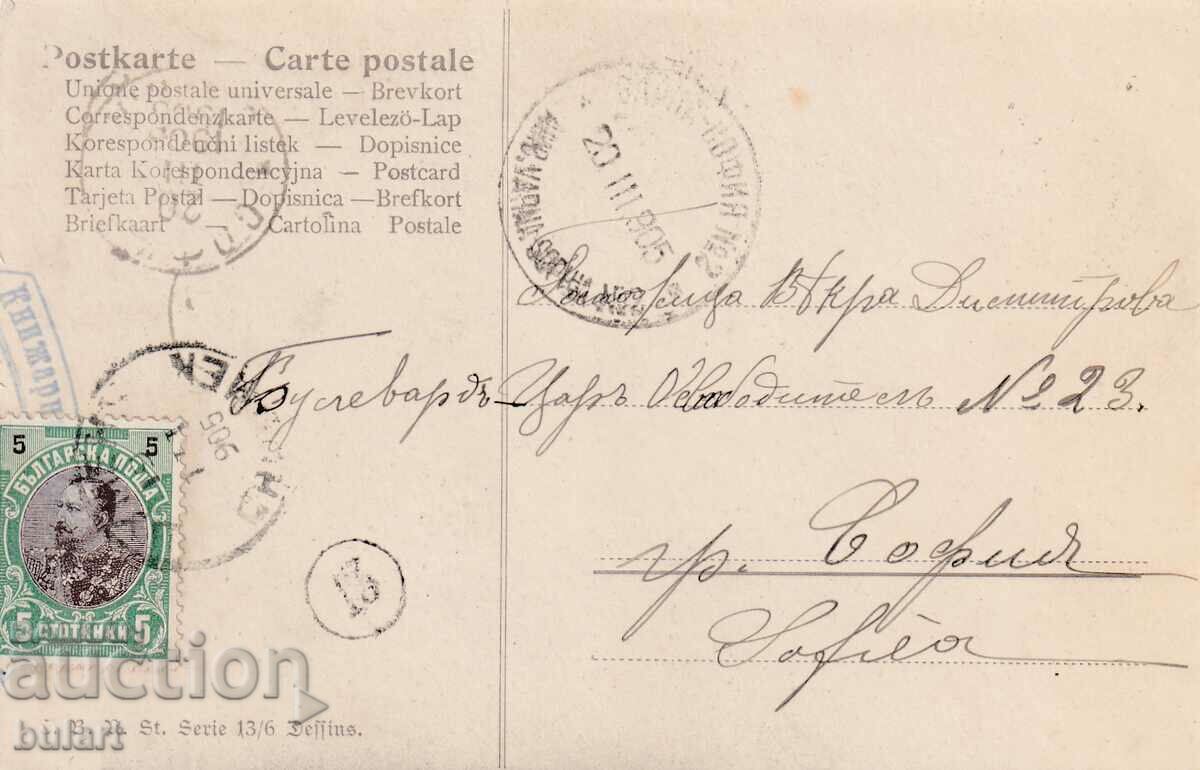 Postkarte — Carte postale
Unione postale universale — Brevkort
Correspondenzkarte — Levelezö-Lap
Korespondenční listek — Dopisnice
Karta Korespondencyjna — Postcard
Tarjeta Postal — Dopisnica — Brefkort
Briefkaart — Cartolina Postale
20 III 905
СОФИЯ № 2
Госпожица Вѣра Димитрова
Булевардъ Царъ Освободителъ № 23.
гр. София
Sofiéa
Книжарн
905
5 5
БЪЛГАРСКА ПОЩА
5 СТОТИНКИ 5
13
St. Serie 13/6 Dessins.
auction
bulart